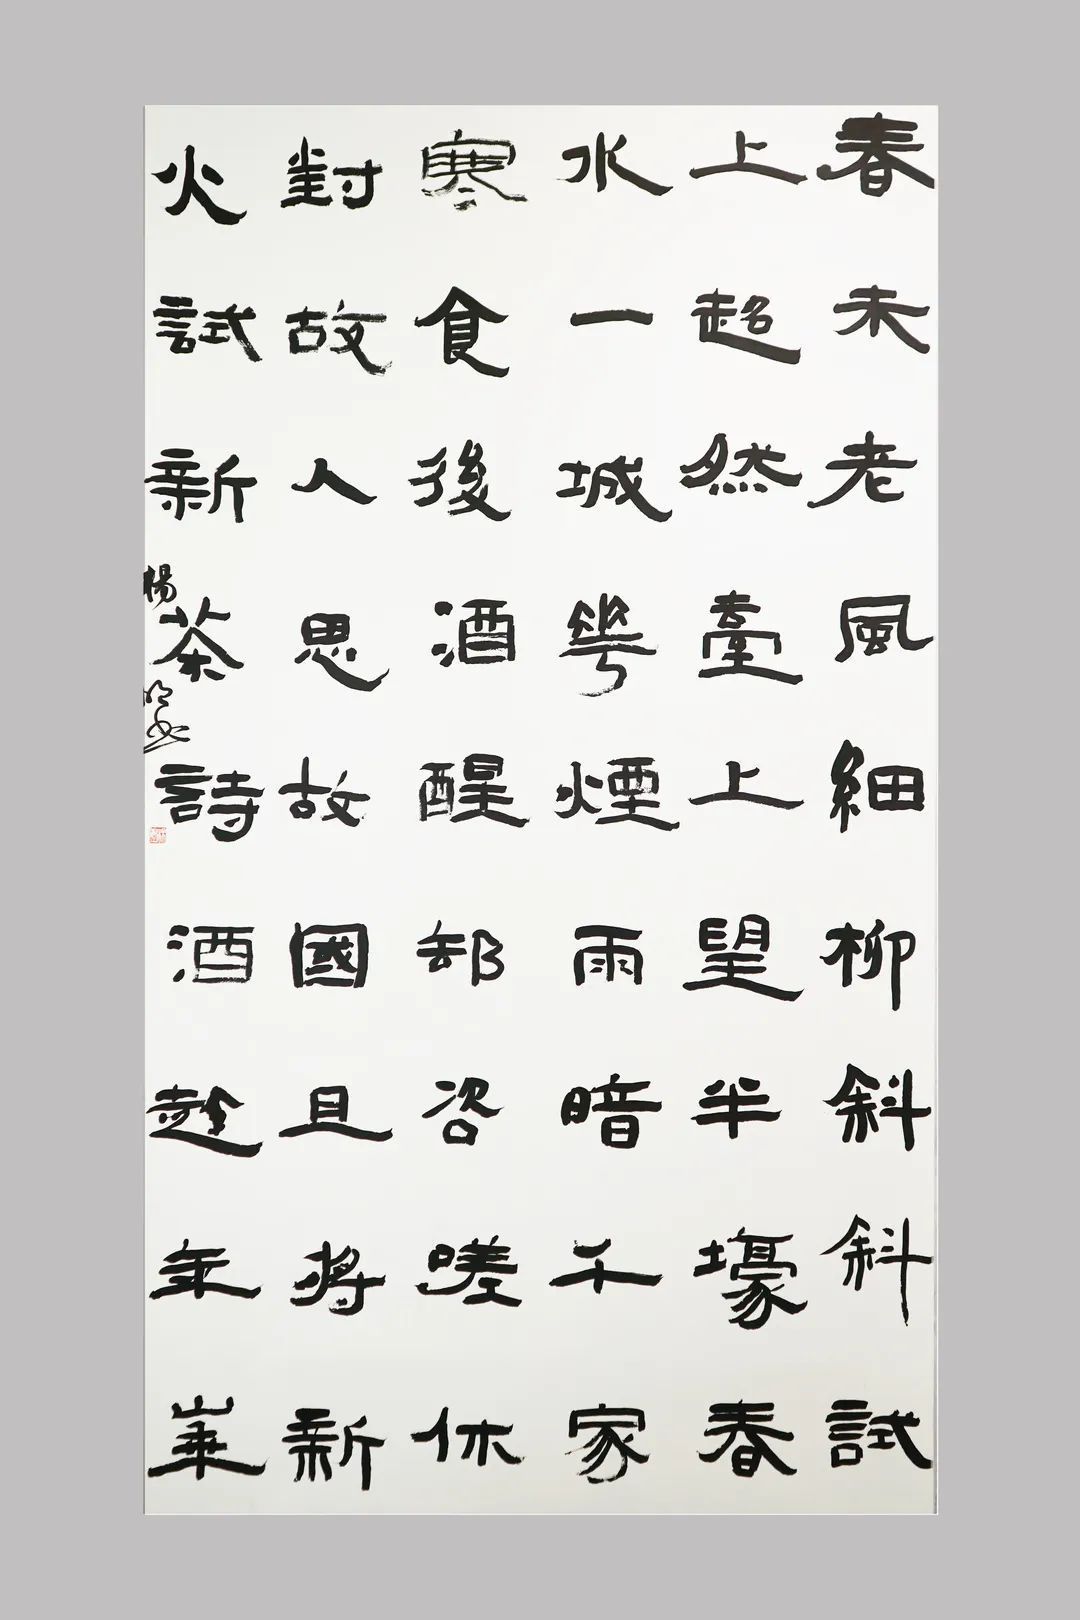 春未老風細柳斜斜試
上超然臺上望半壕春
水一城華煙雨暗千家
寒食後酒醒却咨嗟休
對故人思故國且將新
火試新茶詩酒趁年華
楊